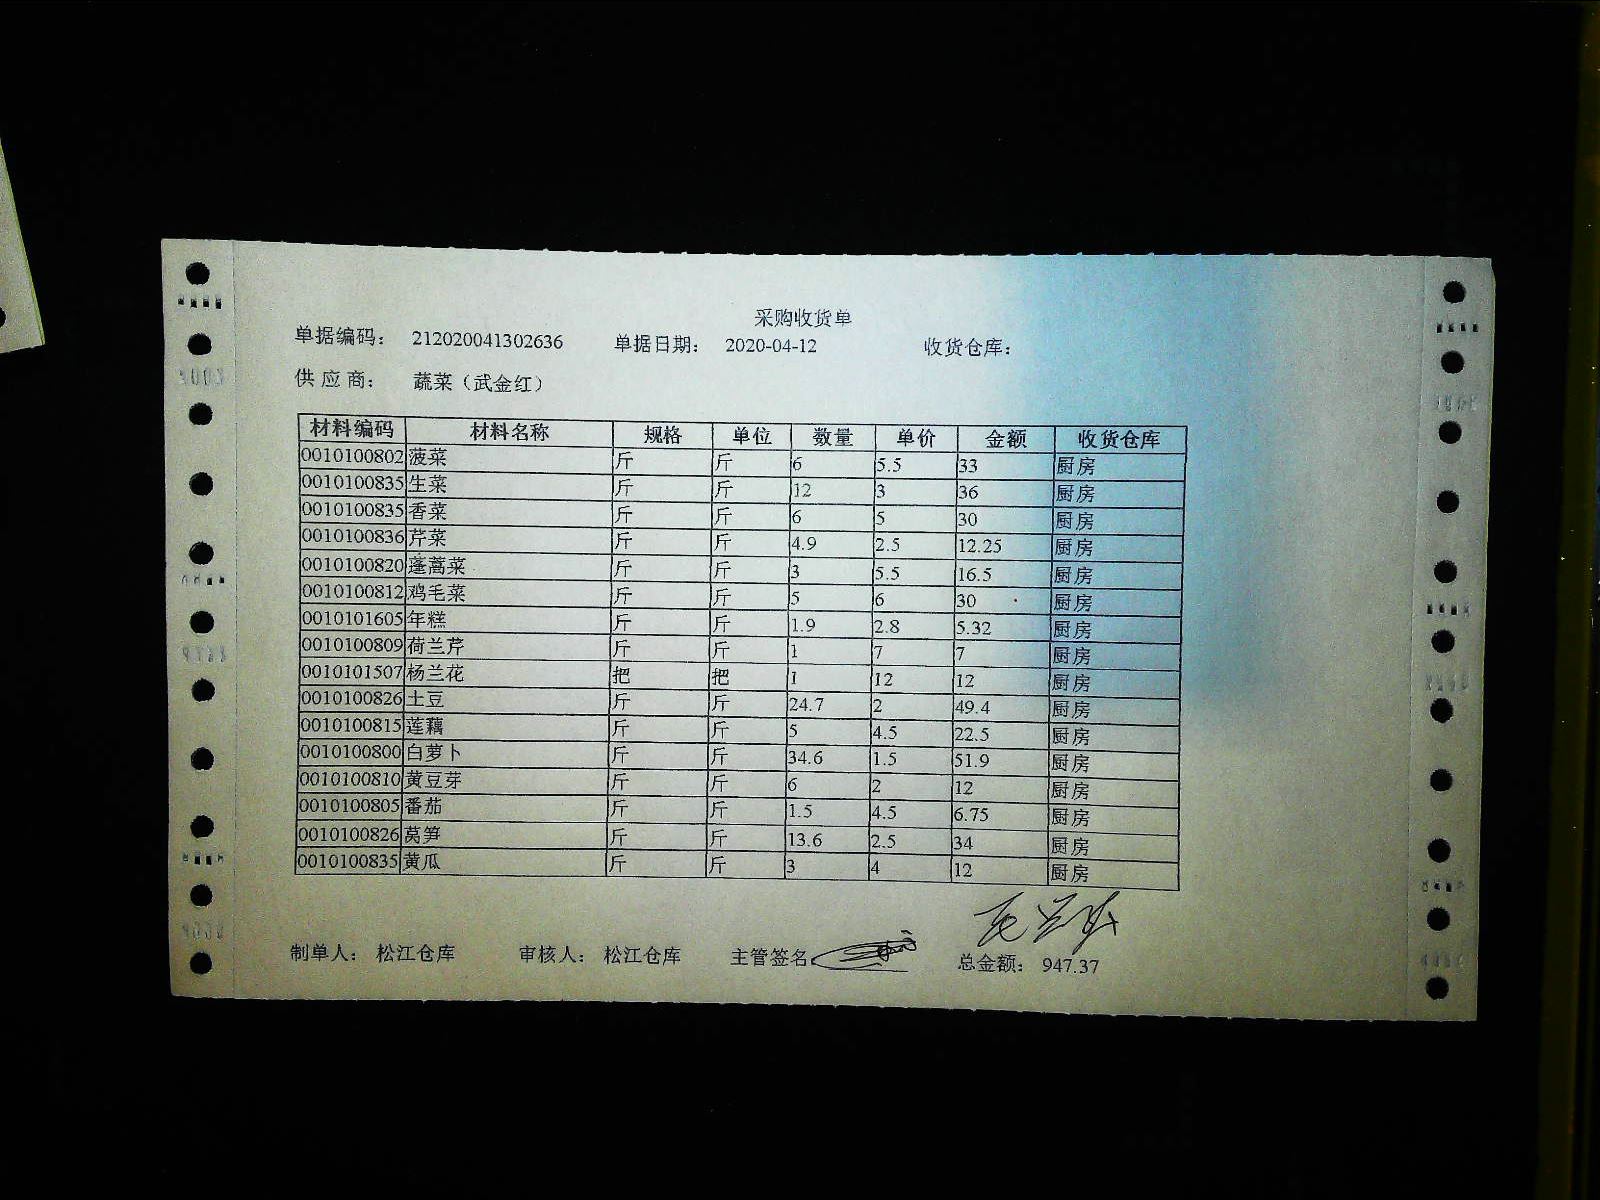 采购收货单
单据编码： 212020041302636 单据日期： 2020-04-12 收货仓库：
供 应 商： 蔬菜（武金红）
材料编码 材料名称 规格 单位 数量 单价 金额 收货仓库
0010100802 菠菜 斤 斤 6 5.5 33 厨房
0010100835 生菜 斤 斤 12 3 36 厨房
0010100835 香菜 斤 斤 6 5 30 厨房
0010100836 芹菜 斤 斤 4.9 2.5 12.25 厨房
0010100820 蓬蒿菜 斤 斤 3 5.5 16.5 厨房
0010100812 鸡毛菜 斤 斤 5 6 30 厨房
0010101605 年糕 斤 斤 1.9 2.8 5.32 厨房
0010100809 荷兰芹 斤 斤 1 7 7 厨房
0010101507 杨兰花 把 把 1 12 12 厨房
0010100826 土豆 斤 斤 24.7 2 49.4 厨房
0010100815 莲藕 斤 斤 5 4.5 22.5 厨房
0010100800 白萝卜 斤 斤 34.6 1.5 51.9 厨房
0010100810 黄豆芽 斤 斤 6 2 12 厨房
0010100805 番茄 斤 斤 1.5 4.5 6.75 厨房
0010100826 莴笋 斤 斤 13.6 2.5 34 厨房
0010100835 黄瓜 斤 斤 3 4 12 厨房
制单人： 松江仓库 审核人： 松江仓库 主管签名 总金额： 947.37